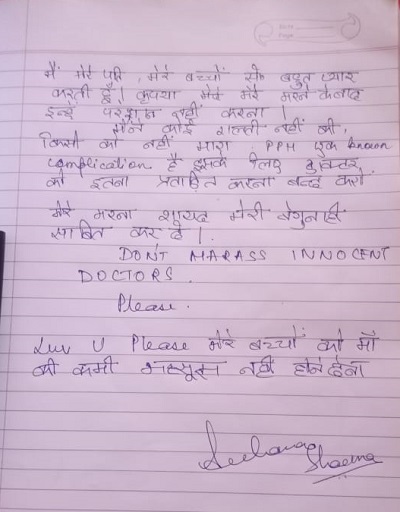 मैं मेरे पति, मेरे बच्चों से बहुत प्यार
करती हूँ। कृपया मेरे मरने के बाद
इन्हें परेशान नहीं करना।
मैंने कोई गलती नहीं की,
किसी को नहीं मारा PPH एक known
complication है इसके लिए डॉक्टर
को इतना प्रताड़ित करना बन्द करो.
मेरा मरना शायद मेरी बेगुनाही
साबित कर दे।
DON'T HARASS INNOCENT
DOCTORS.
Please.
Luv U Please मेरे बच्चों को माँ
की कमी महसूस नहीं होने देना
Sharma